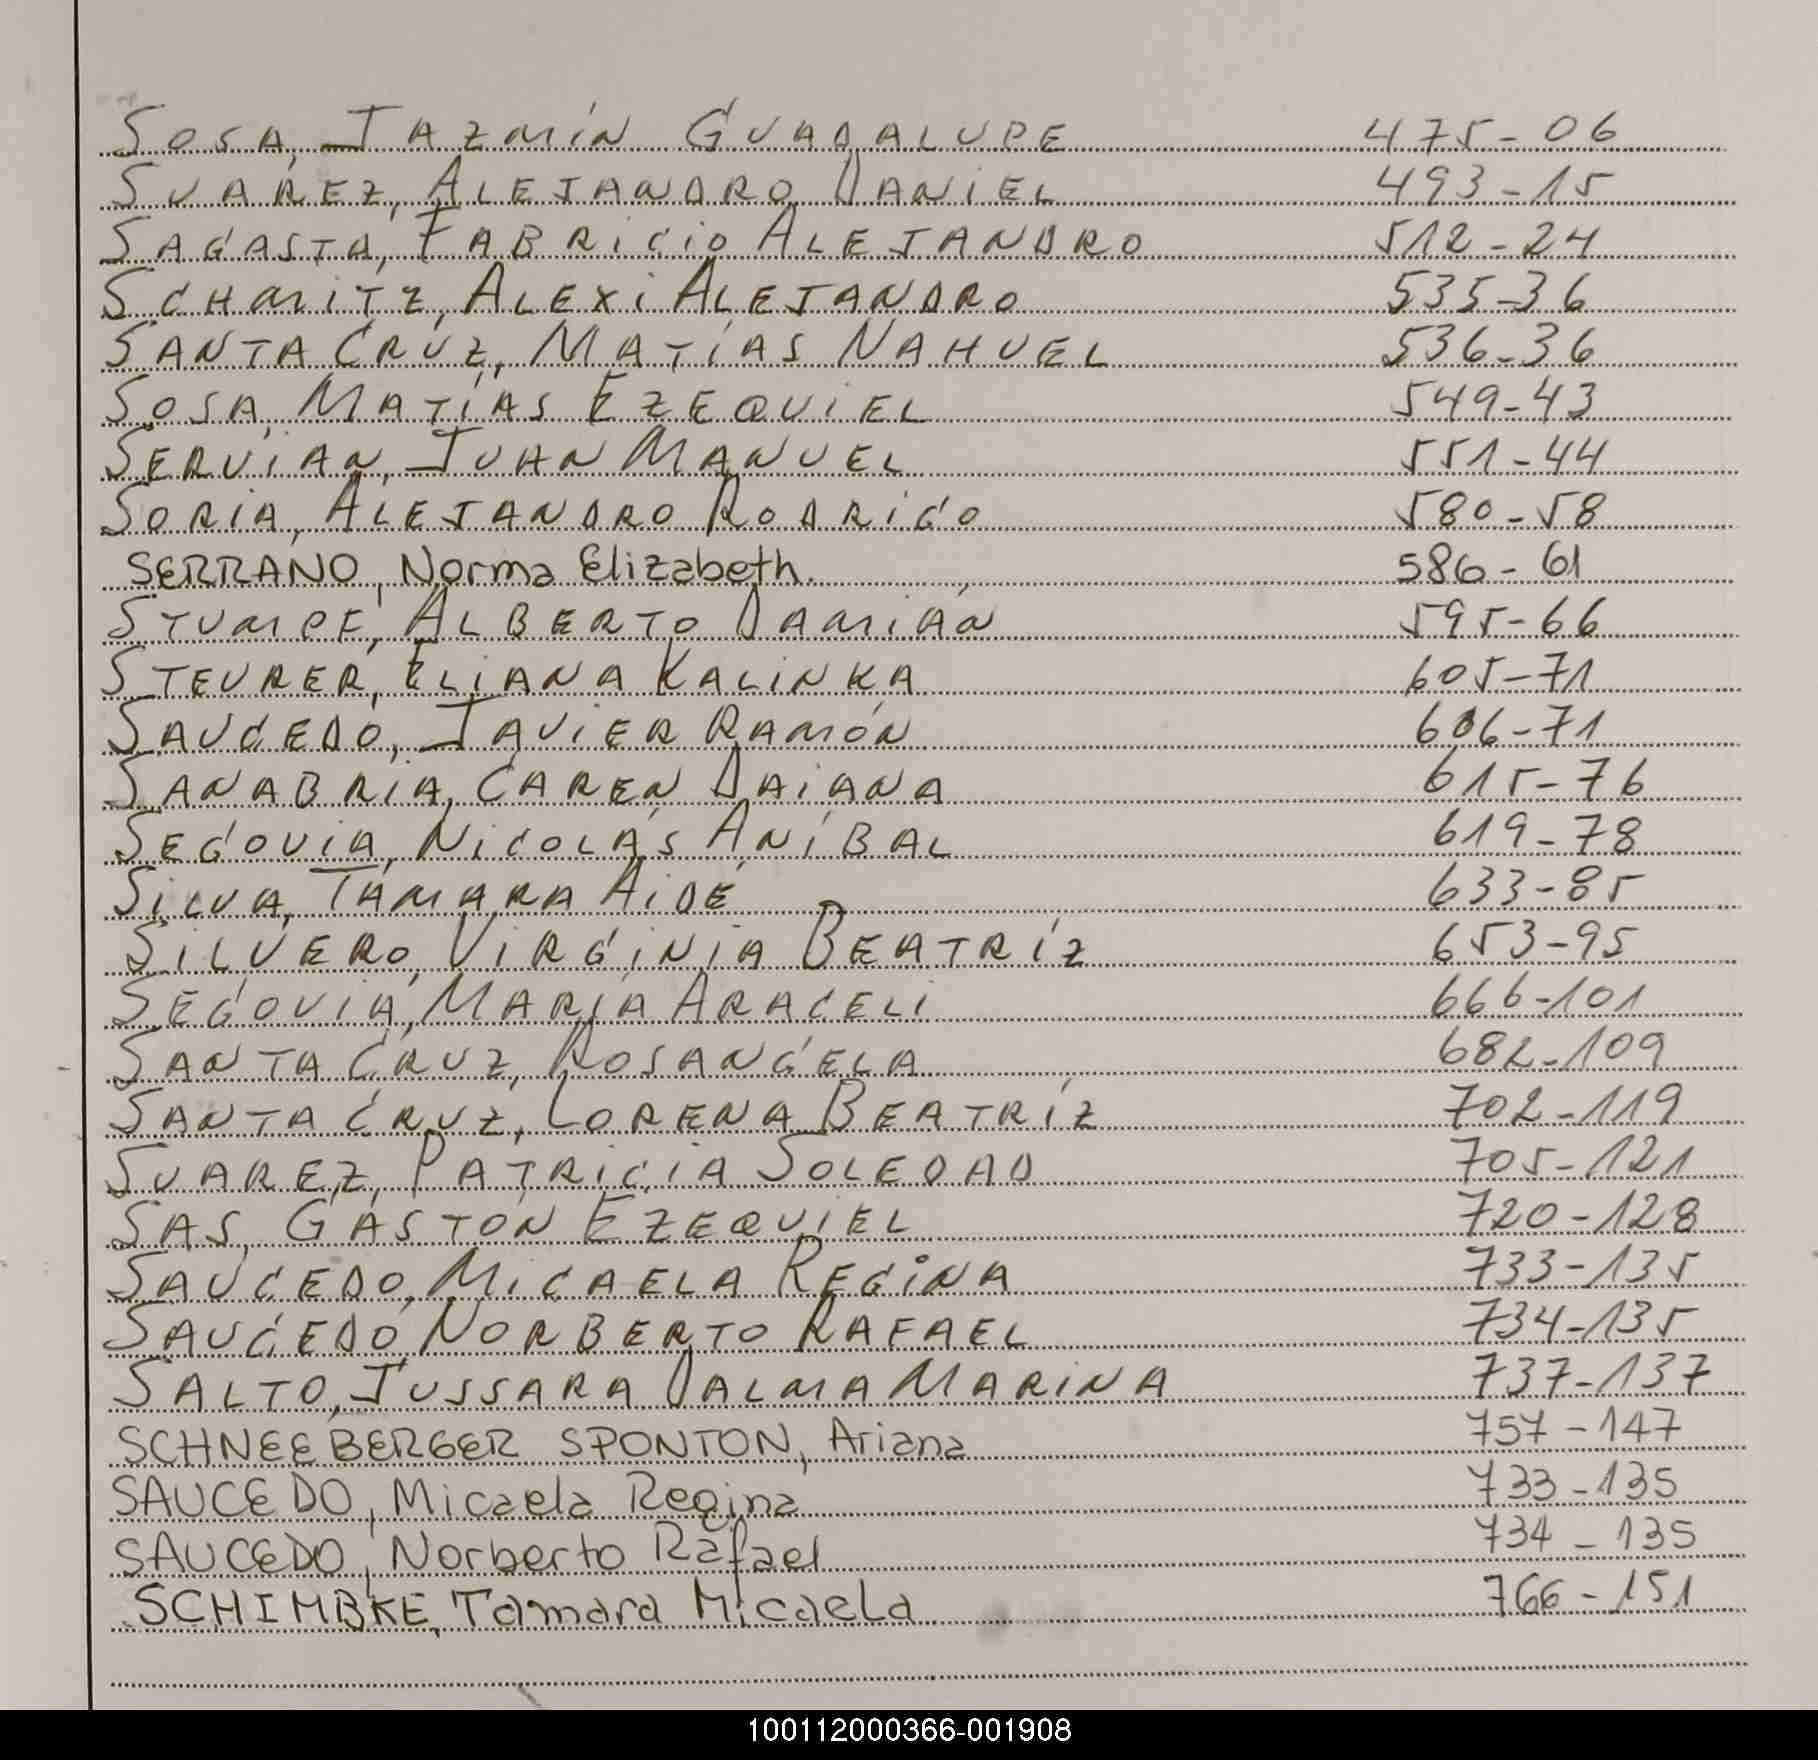 SOSA, JAZMÍN GUADALUPE 475-06
SUAREZ, ALEJANDRO DANIEL 493-15
SAGASTA, FABRICIO ALEJANDRO 512-24
SCHMITZ, ALEXI ALEJANDRO 535-36
SANTA CRUZ, MATÍAS NAHUEL 536-36
SOSA, MATÍAS EZEQUIEL 549-43
SERVIÁN, JUAN MANUEL 551-44
SORIA, ALEJANDRO RODRIGO 580-58
SERRANO, Norma Elizabeth. 586-61
STUMPF, ALBERTO DAMIÁN 595-66
STEURER, ELIANA KALINKA 605-71
SAUCEDO, JAVIER RAMÓN 606-71
SANABRIA, CAREN DAIANA 615-76
SEGOVIA, NICOLÁS ANÍBAL 619-78
SILVA, TAMARA AIDÉ 633-85
SILVERO, VIRGINIA BEATRÍZ 653-95
SEGOVIA, MARÍA ARACELI 666-101
SANTA CRUZ, ROSANGELA 682-109
SANTA CRUZ, LORENA BEATRÍZ 702-119
SUAREZ, PATRICIA SOLEDAD 705-121
SAS, GASTÓN EZEQUIEL 720-128
SAUCEDO, MICAELA REGINA 733-135
SAUCEDO NORBERTO RAFAEL 734-135
SALTO, JUSSARA DALMA MARINA 737-137
SCHNEEBERGER SPONTON, Ariana 757-147
SAUCEDO, Micaela Regina 733-135
SAUCEDO, Norberto Rafael 734-135
SCHIMBKE, Tamara Micaela 766-151
100112000366-001908